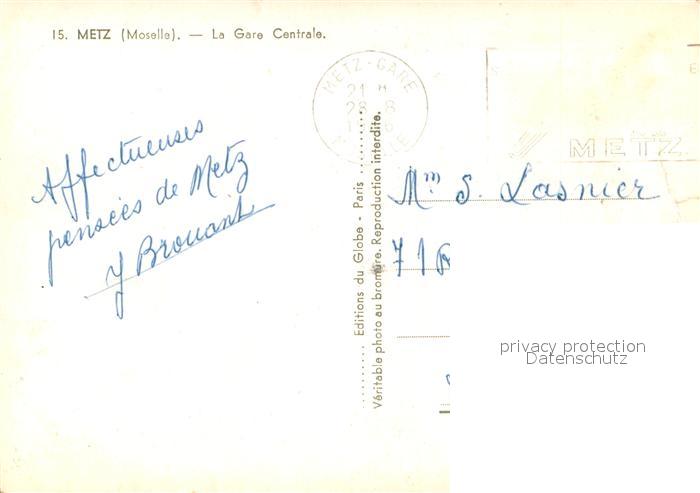 15. METZ (Moselle). — La Gare Centrale.
METZ-GARE
21 H
28 8
METZ
Affectueuses
pensées de Metz
Y Brouant
Editions du Globe - Paris
Véritable photo au bromure. Reproduction interdite.
Mm S. Lasnier
71
privacy protection
Datenschutz